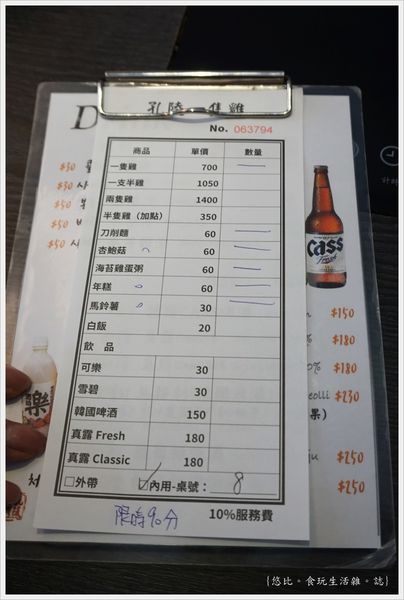 孔陵一隻雞
No. 063794
商品 單價 數量
一隻雞 700 一
一支半雞 1050
兩隻雞 1400
半隻雞 (加點) 350
刀削麵 60 一
杏鮑菇 60 一
海苔雞蛋粥 60 一
年糕 60 一
馬鈴薯 30 一
白飯 20
飲 品
可樂 30
雪碧 30
韓國啤酒 150
真露 Fresh 180
真露 Classic 180
□外帶 ☑內用-桌號: 8
限時90分 10%服務費
D
$30
$30
$50
$50
$50
Cass
Fresh
$150
$180
0% $180
eolli $230
果)
ju $250
$250
樂
{悠比。食玩生活雜。誌}